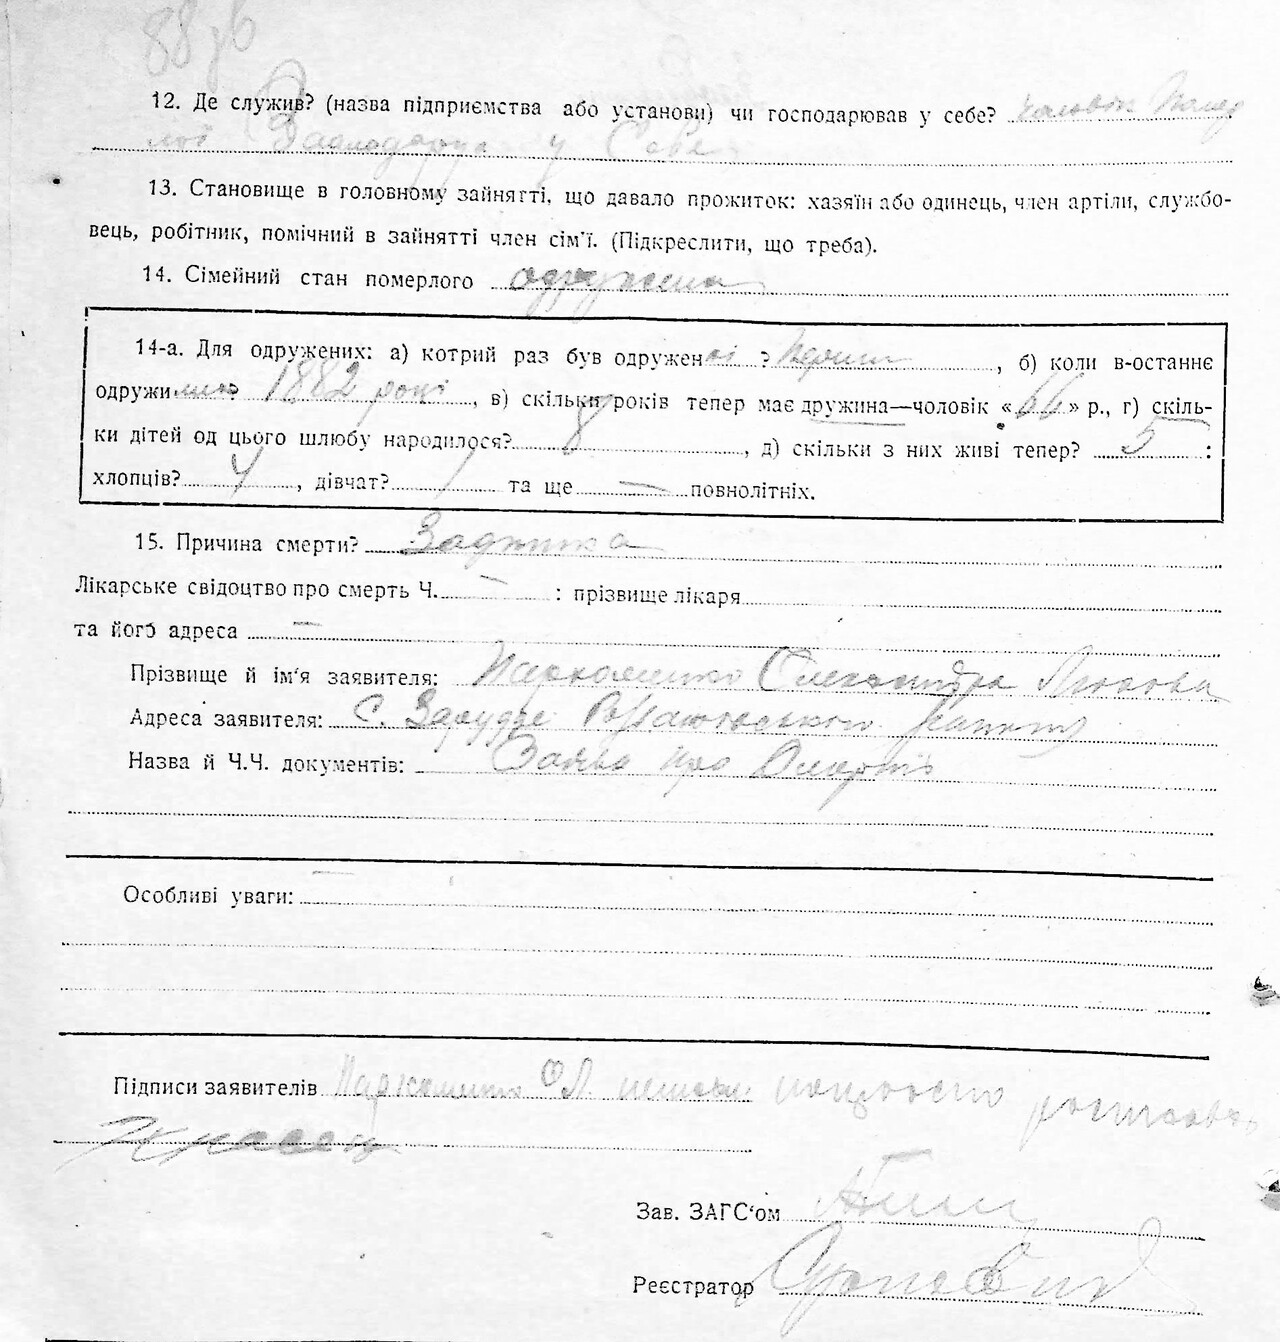 88 зв
12. Де служив? (назва підприємства або установи) чи господарював у себе? чоловік помер
лої Господарув у Себе
13. Становище в головному зайнятті, що давало прожиток: хазяїн або одинець, член артіли, службо-
вець, робітник, помічний в зайнятті член сім'ї. (Підкреслити, що треба).
14. Сімейний стан померлого одружена
14-а. Для одружених: а) котрий раз був одружені ? Перший , б) коли в-останнє
одружилися 1882 році , в) скільки років тепер має дружина—чоловік «66» р., г) скіль-
ки дітей од цього шлюбу народилося? 8 , д) скільки з них живі тепер? 5 :
хлопців? 4 , дівчат? 1 та ще — повнолітніх.
15. Причина смерти? Задишка
Лікарське свідоцтво про смерть Ч. — : прізвище лікаря
та його адреса —
Прізвище й ім'я заявителя: Пархоменко Олександра
Адреса заявителя: С. Зарудде
Назва й Ч.Ч. документів: Заява про Смерть
Особливі уваги: —
Підписи заявителів Пархоменко О Л.
Зав. ЗАГС'ом
Реєстратор